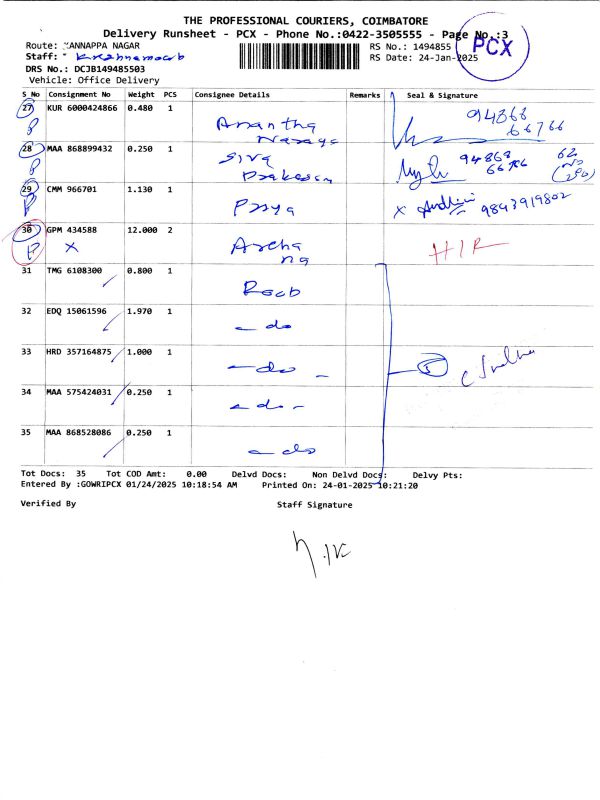 THE PROFESSIONAL COURIERS, COIMBATORE
Delivery Runsheet - PCX - Phone No.:0422-3505555 - Page No.:3
Route: KANNAPPA NAGAR
RS No.: 1494855
PCX
Staff:
RS Date: 24-Jan-2025
DRS No.: DCJB149485503
Vehicle: Office Delivery
S_No Consignment No Weight PCS Consignee Details Remarks Seal & Signature
27 KUR 6000424866 0.480 1 Anantha 94868 66766
28 MAA 868899432 0.250 1 Siva Prakasam 94868 66766 62
29 CMM 966701 1.130 1 Priya x 9843919802
30 GPM 434588 12.000 2 Archana
X
31 TMG 6108300 0.800 1
32 EDQ 15061596 1.970 1 - do
33 HRD 357164875 1.000 1 - do -
34 MAA 575424031 0.250 1 - do -
35 MAA 868528086 0.250 1 - do
Tot Docs: 35 Tot COD Amt: 0.00 Delvd Docs: Non Delvd Docs: Delvy Pts:
Entered By :GOWRIPCX 01/24/2025 10:18:54 AM Printed On: 24-01-2025 10:21:20
Verified By Staff Signature